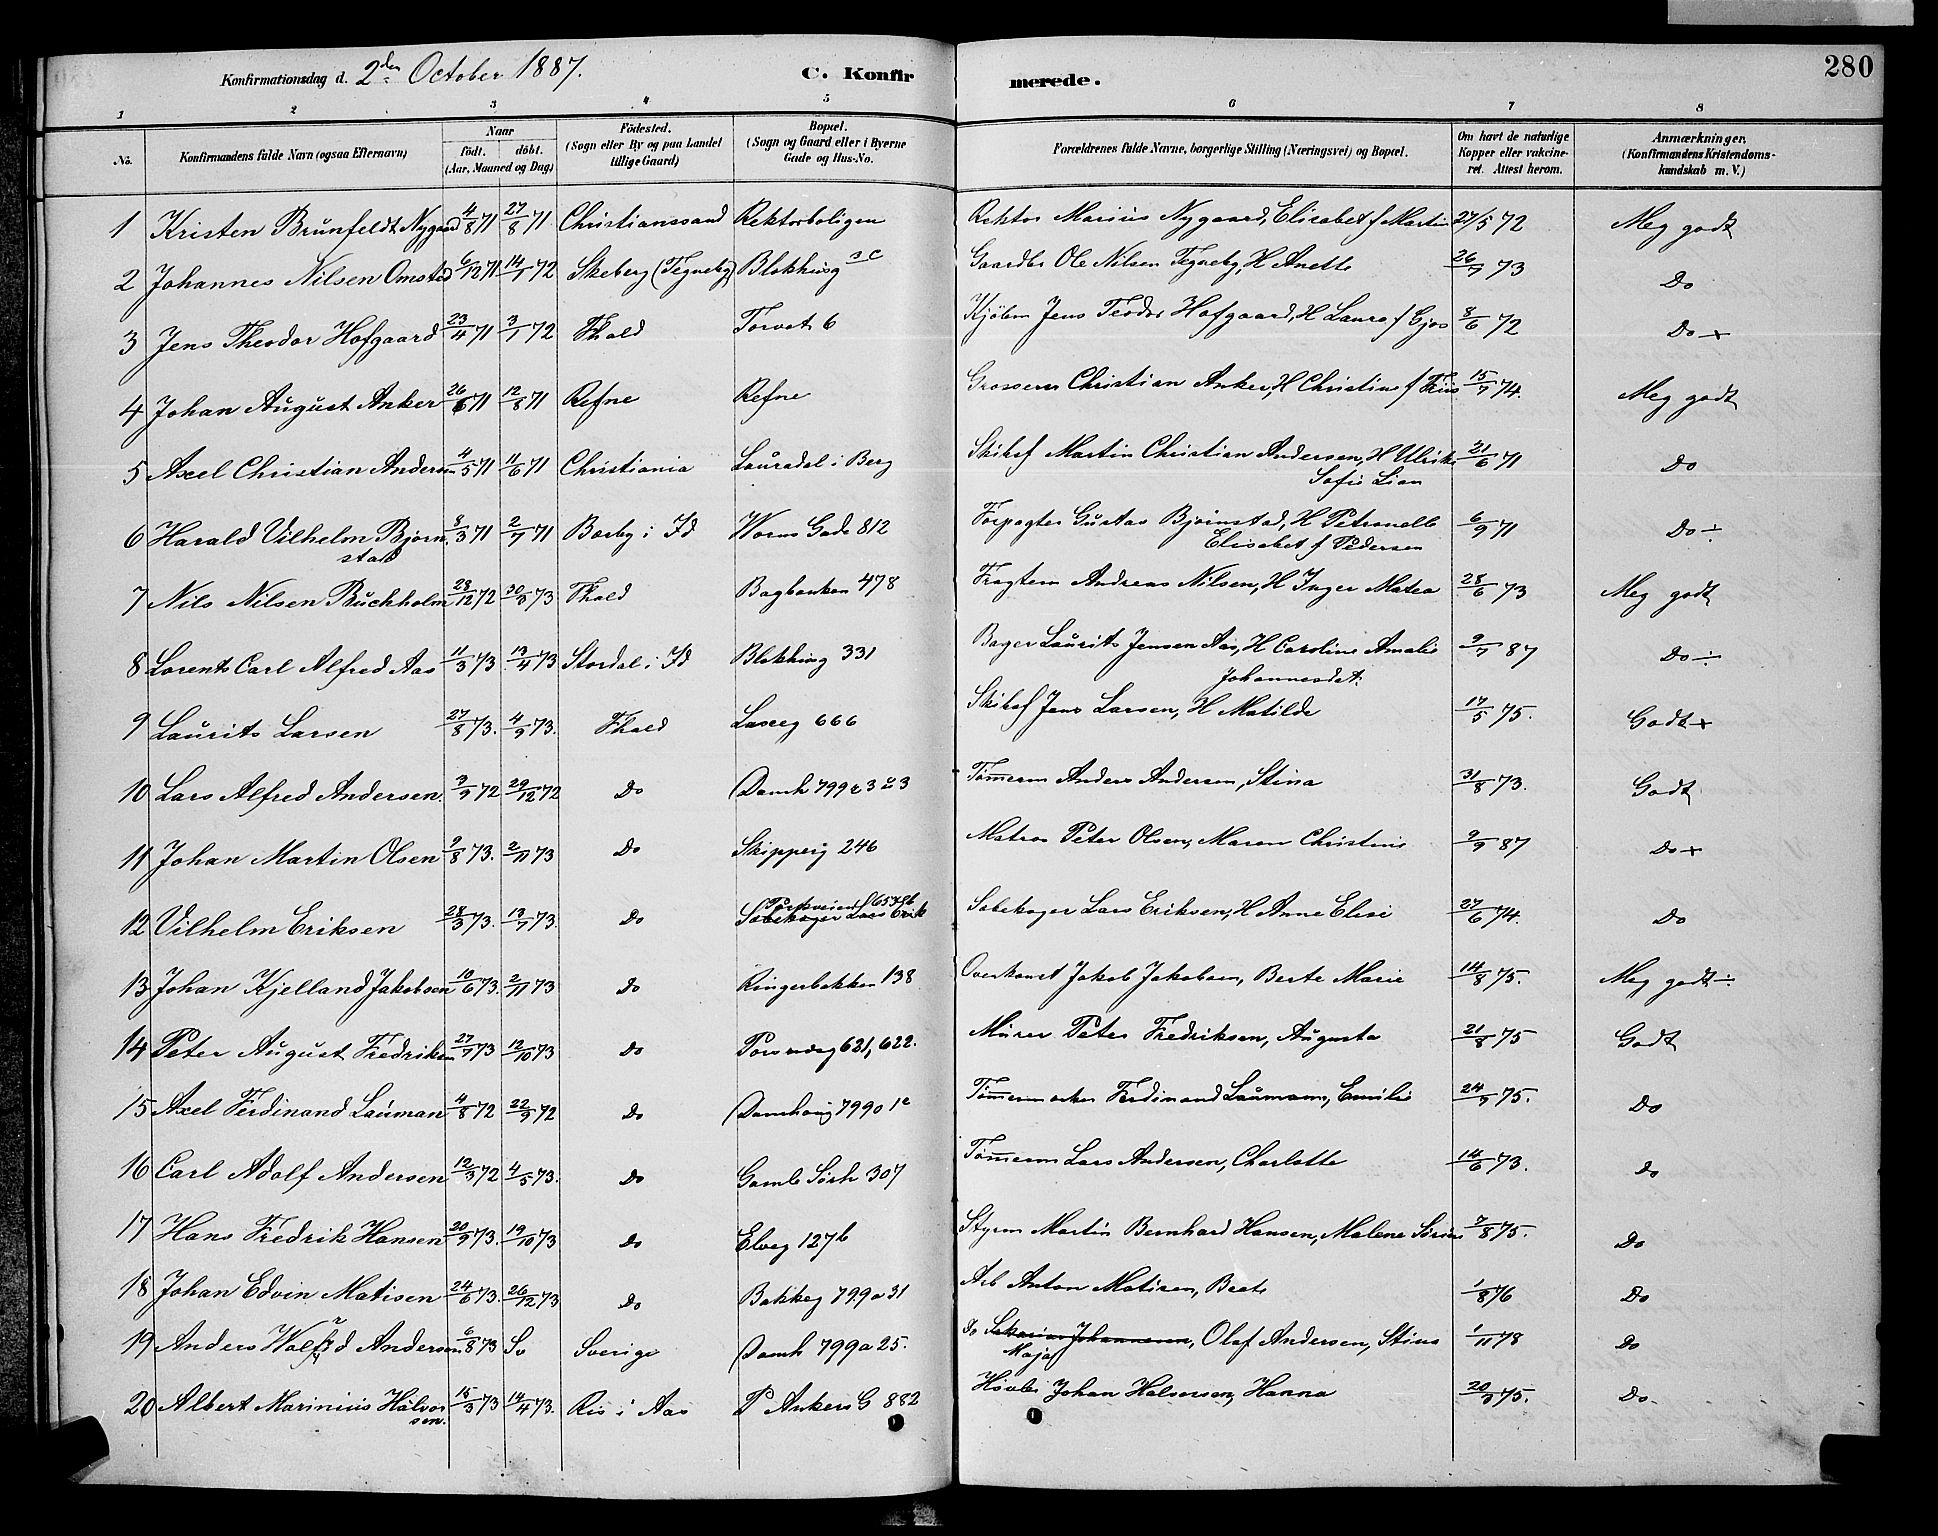 280
Konfirmationsdag d. 2den October 1887. C. Konfirmerede.
1 2 3 4 5 6 7 8
No. Konfirmandens fulde Navn (ogsaa Efternavn) Naar födt. döbt. (Aar, Maaned og Dag) Födested. (Sogn eller By og paa Landet tillige Gaard) Bopæl. (Sogn og Gaard eller i Byerne Gade og Hus-No. Forældrenes fulde Navne, borgerlige Stilling (Næringsvei) og Bopæl. Om havt de naturlige Kopper eller vakcineret. Attest herom. Anmærkninger. (Konfirmandens Kristendomskundskab m. V.)
1 Kristen Brunfeldt Nygaard 4/8 71 27/8 71 Christianssand Rektorboligen Rektor Marius Nygaard, Elisabet f Martin 27/5 72 Meg godt
2 Johannes Nilsen Omsted 6/12 71 14/1 72 Skeberg (Tegneby) Blokhusg Gaardbr Ole Nilsen Tegneby, H Anette 26/7 73 Do
3 Jens Theodor Hofgaard 23/4 71 3/1 72 Fhald Torvet 6 Kjøbm Jens Teodor Hofgaard, H Laura f Gjos 8/6 72 Do +
4 Johan August Anker 26/6 71 12/8 71 Refne Refne Grosserer Christian Anker, H Christine f Friis 15/7 74. Meg godt
5 Axel Christian Andersen 4/5 71 11/6 71 Christiania Lauradal i Berg Skibsf Martin Christian Andersen, H Ulrikke 21/6 71 Do
Sofie Lian
6 Harald Vilhelm Bjørn 8/3 71 2/7 71 Bærby i Id Worms Gade 812 Forpagter Gustav Bjørnstad, H Petronelle 6/9 71 Do ÷
stad Elisabet f Pedersen
7 Nils Nilsen Buchholm 28/12 72 30/3 73 Fhald Bagbanken 478 Fragtem Andreas Nilsen, H Inger Matea 28/6 73 Meg godt
8 Lorents Carl Alfred Aas 11/3 73. 13/4 73 Stordal i Id Blokhusg 331 Bager Laurits Jensen Aas, H Caroline Amalie 9/7 87 Do ÷
Johannesdat.
9 Laurits Larsen 27/8 73. 4/9 73. Fhald Laseg 666 Skibsf Jens Larsen, H Matilde 17/5 75. Godt +
10 Lars Alfred Andersen. 3/9 72 29/12 72 Do Damh 799 Tømmerm Anders Andersen, Stina 31/8 73. Godt
11 Johan Martin Olsen 9/8 73. 2/11 73 Do Skipperg 246 Matros Peter Olsen, Maren Christine 9/9 87 Do +
12 Vilhelm Eriksen 28/3 73. 13/7 73. Do Sæbekoger Lars Eriksen, H Anne Elise 27/6 74. Do
13 Johan Kjelland Jakobsen 10/6 73. 2/11 73 Do Ringerbakken 138 Overkonst Jakob Jakobsen, Berte Marie 14/8 75. Meg godt ÷
14 Peter August Fredriksen 27/7 73 12/10 73 Do 621, 622. Murer Peter Fredriksen, Augusta 21/8 75 Godt
15 Axel Ferdinand Lauman 4/8 72 22/9 72 Do Damhaug 799 Ferdinand Laumann, Emilie 24/9 75. Do
16 Carl Adolf Andersen 12/3 72 4/5 73. Do Gamle Sørh 307 Tømmerm Lars Andersen, Charlotte 14/6 73. Do
17 Hans Fredrik Hansen 20/9 73. 19/10 73 Do Elveg 127b Styrm Martin Bernhard Hansen, Malene Sørine 7/8 75. Do
18 Johan Edvin Matisen 24/6 73. 26/12 73 Do Bakkeg 799a 31 Arb Anton Matisen, Beate 1/8 76 Do
19 Anders Andersen 6/8 73 Sv Sverige Damh 799a 25. Do Sakarias Johannesen, Olaf Andersen, Stina 1/11 78 Do
Maja
20 Albert Marinius Halvor 15/3 73 14/4 73. Ris i Aas P Ankers G 882 Høvler Johan Halvorsen, Hanna 20/9 75. Do.
sen.